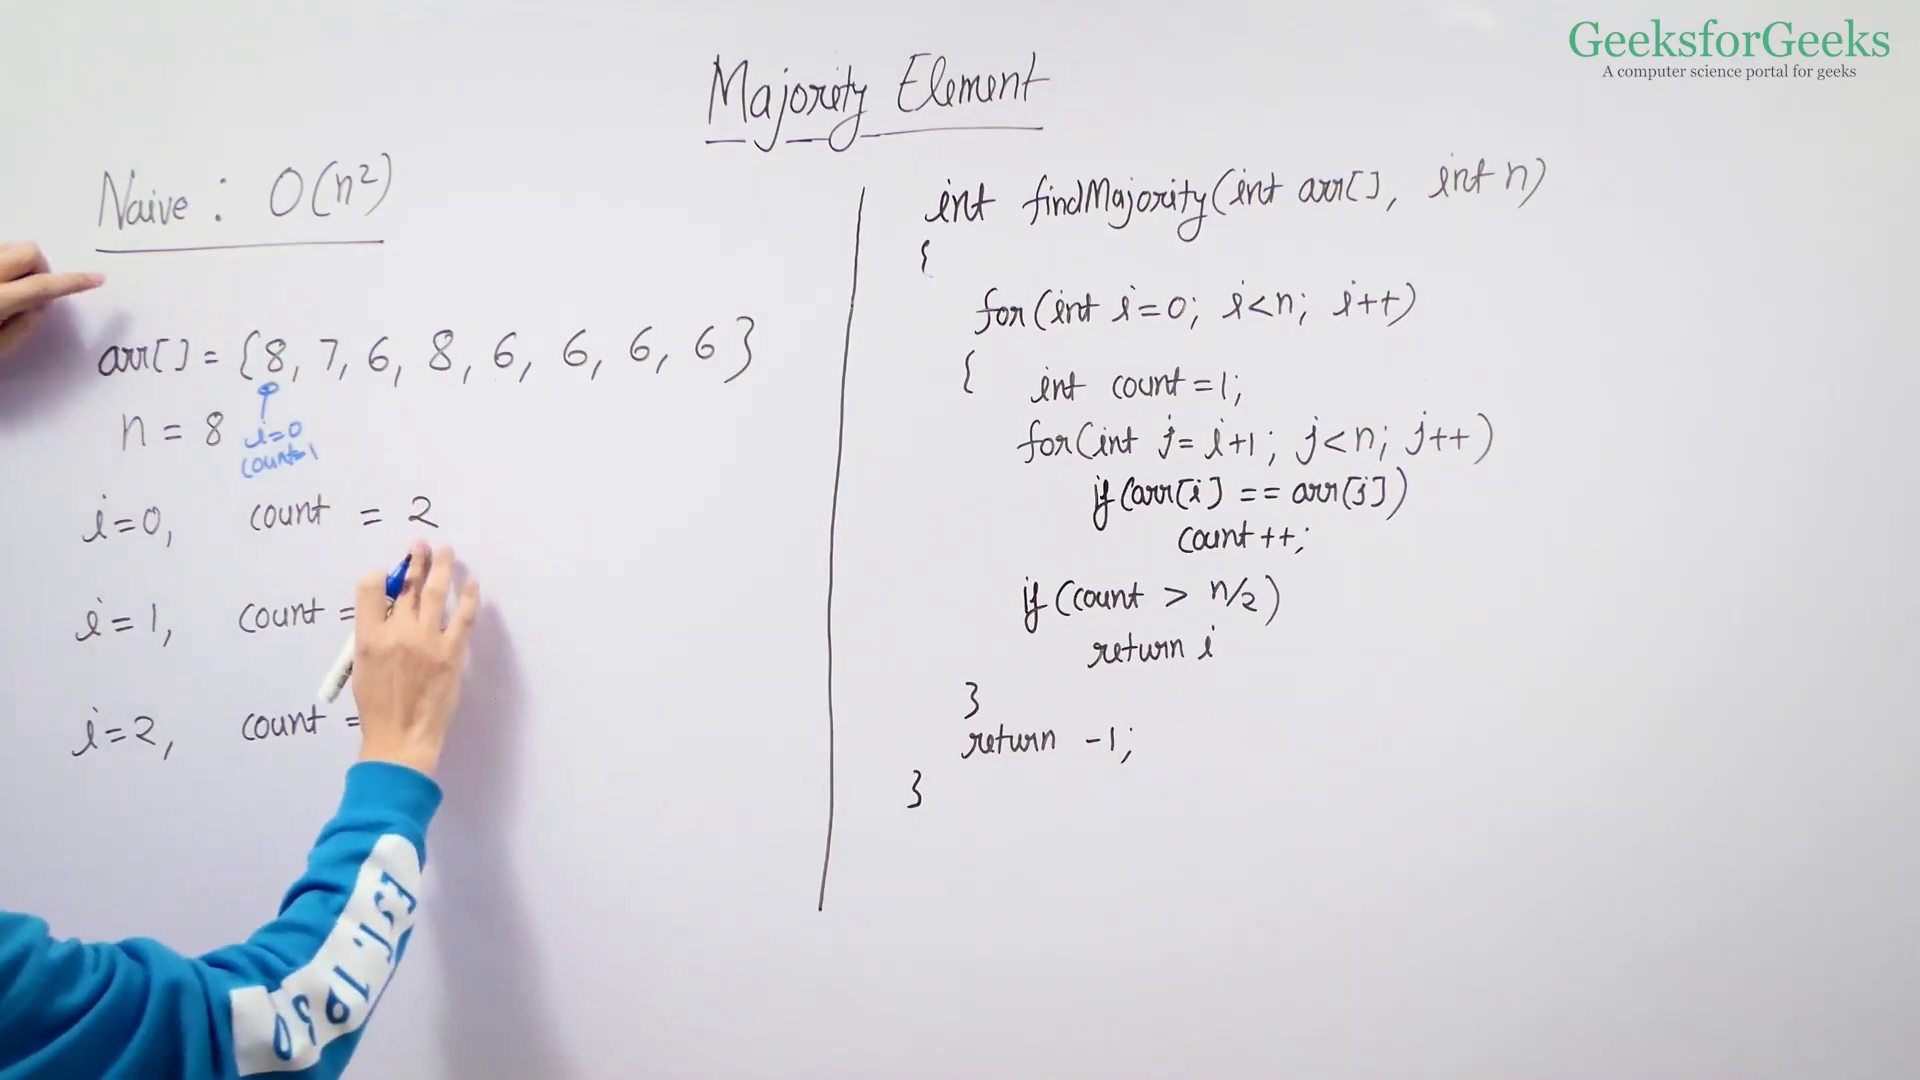 GeeksforGeeks
A computer science portal for geeks
Majority Element
Naive : O(n²)
arr[] = {8, 7, 6, 8, 6, 6, 6, 6}
n = 8
i=0
count=1
i=0, count = 2
i=1, count =
i=2, count =
int findMajority(int arr[], int n)
{
for(int i=0; i<n; i++)
{ int count=1;
for(int j= i+1; j<n; j++)
if(arr[i] == arr[j])
count++;
if(count > n/2)
return i
}
return -1;
}